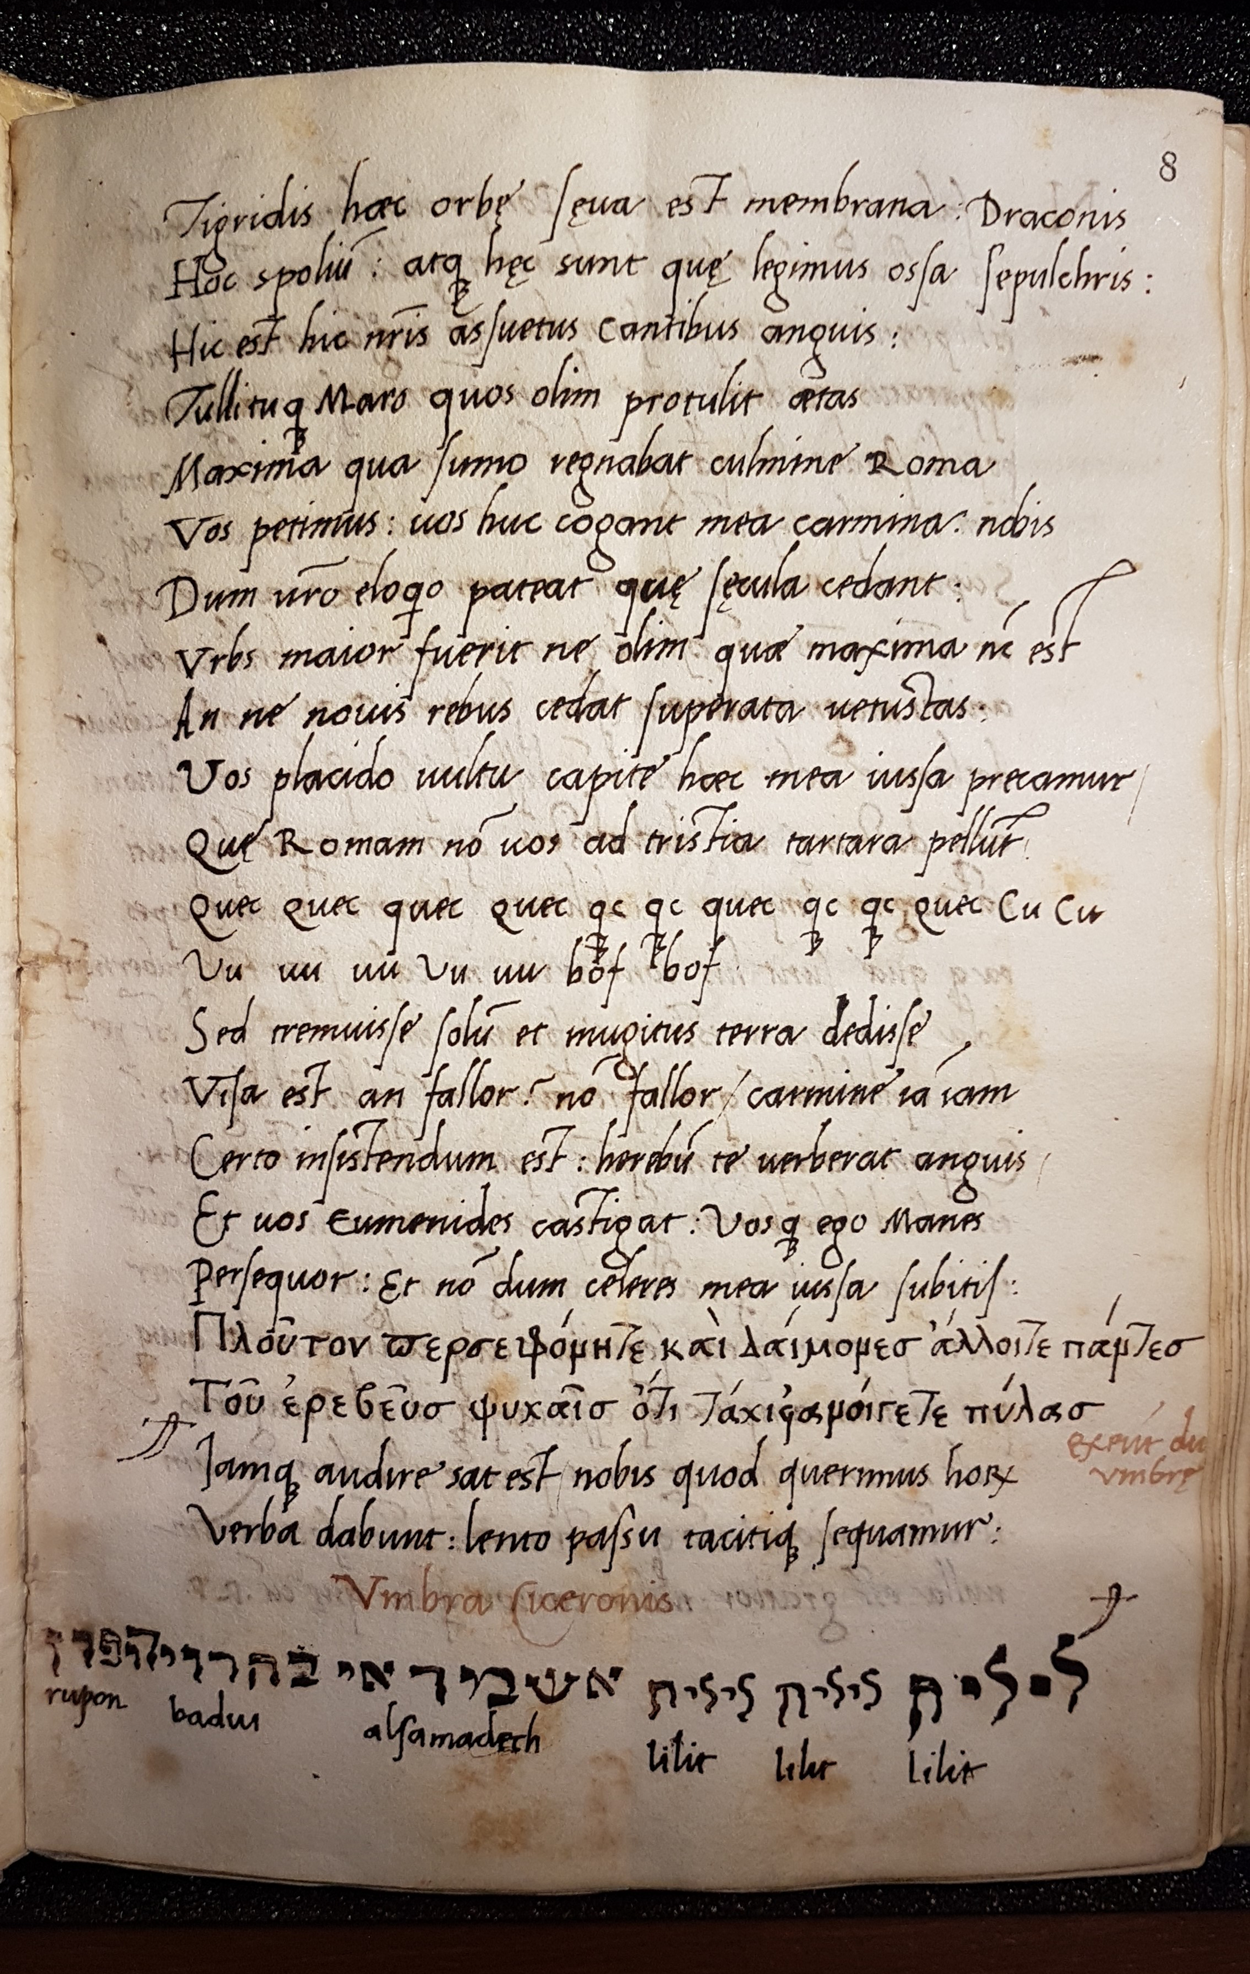 8
Tigridis hæc orbę sęua est membrana: Draconis
Hoc spoliū: atqꝫ hęc sunt quę legimus ossa sepulchris:
Hic est hic nr̄is assuetus cantibus anguis:
Tulli tuqꝫ Maro quos olim protulit ætas
Maxima qua sumo regnabat culmine Roma
Vos petimus: uos huc cogant mea carmina: nobis
Dum ur̄o eloqo pateat quę sęcula cedant:
Vrbs maior fuerit ne olim quæ maxima nc̄ est
An ne nouis rebus cedat superata uetustas:
Vos placido uultu capite hæc mea iussa precamur/
Quę Romam nō uos ad tristia tartara pellūt
Quec quec quec quec qꝫc qꝫc quec qꝫc qꝫc quec Cu Cu
Vu uu uu Vu uu bof bof
Sed tremuisse solū et mugitus terra dedisse
Visa est an fallor? nō fallor/ carmine iā iam
Certo insistendum est: herebū te uerberat anguis
Et uos Eumenides castigat: Vosqꝫ ego Manes
Persequor: Et nō dum celeres mea iussa subitis:
Πλοῦτον περσεφόνητε καὶ δαίμονες ἄλλοιτε πάντες
Τοῦ ἐρεβεῦς ψυχαῖς ὅτι τάχιςα νοίγετε πύλας
Iamqꝫ audire sat est/ nobis quod querimus hoꝝ
exeūt
vmbrę
Verba dabunt: lento passu tacitiqꝫ sequamur:
Vmbra Ciceronis
לילית לילית לילית
rupon badui alsamadech lilit lilit lilit